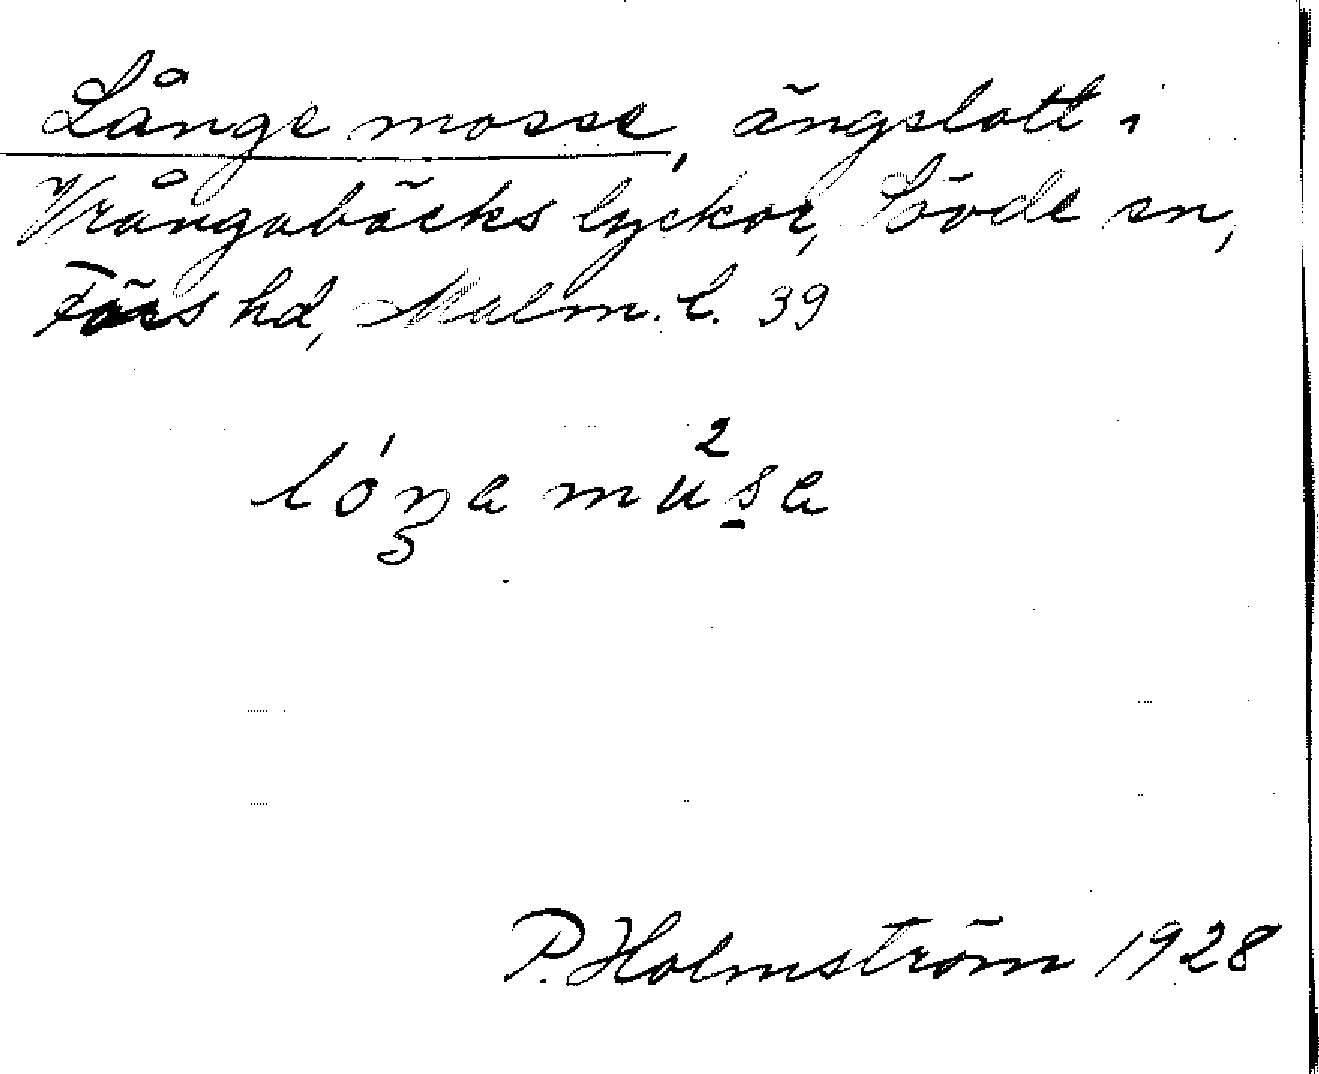 Långe mosse, ängslott i
Vrångabäcks lyckor, Sövde sn,
Färs hd, Malm. l. 39
lóŋa mu²sa
P. Holmström 1928